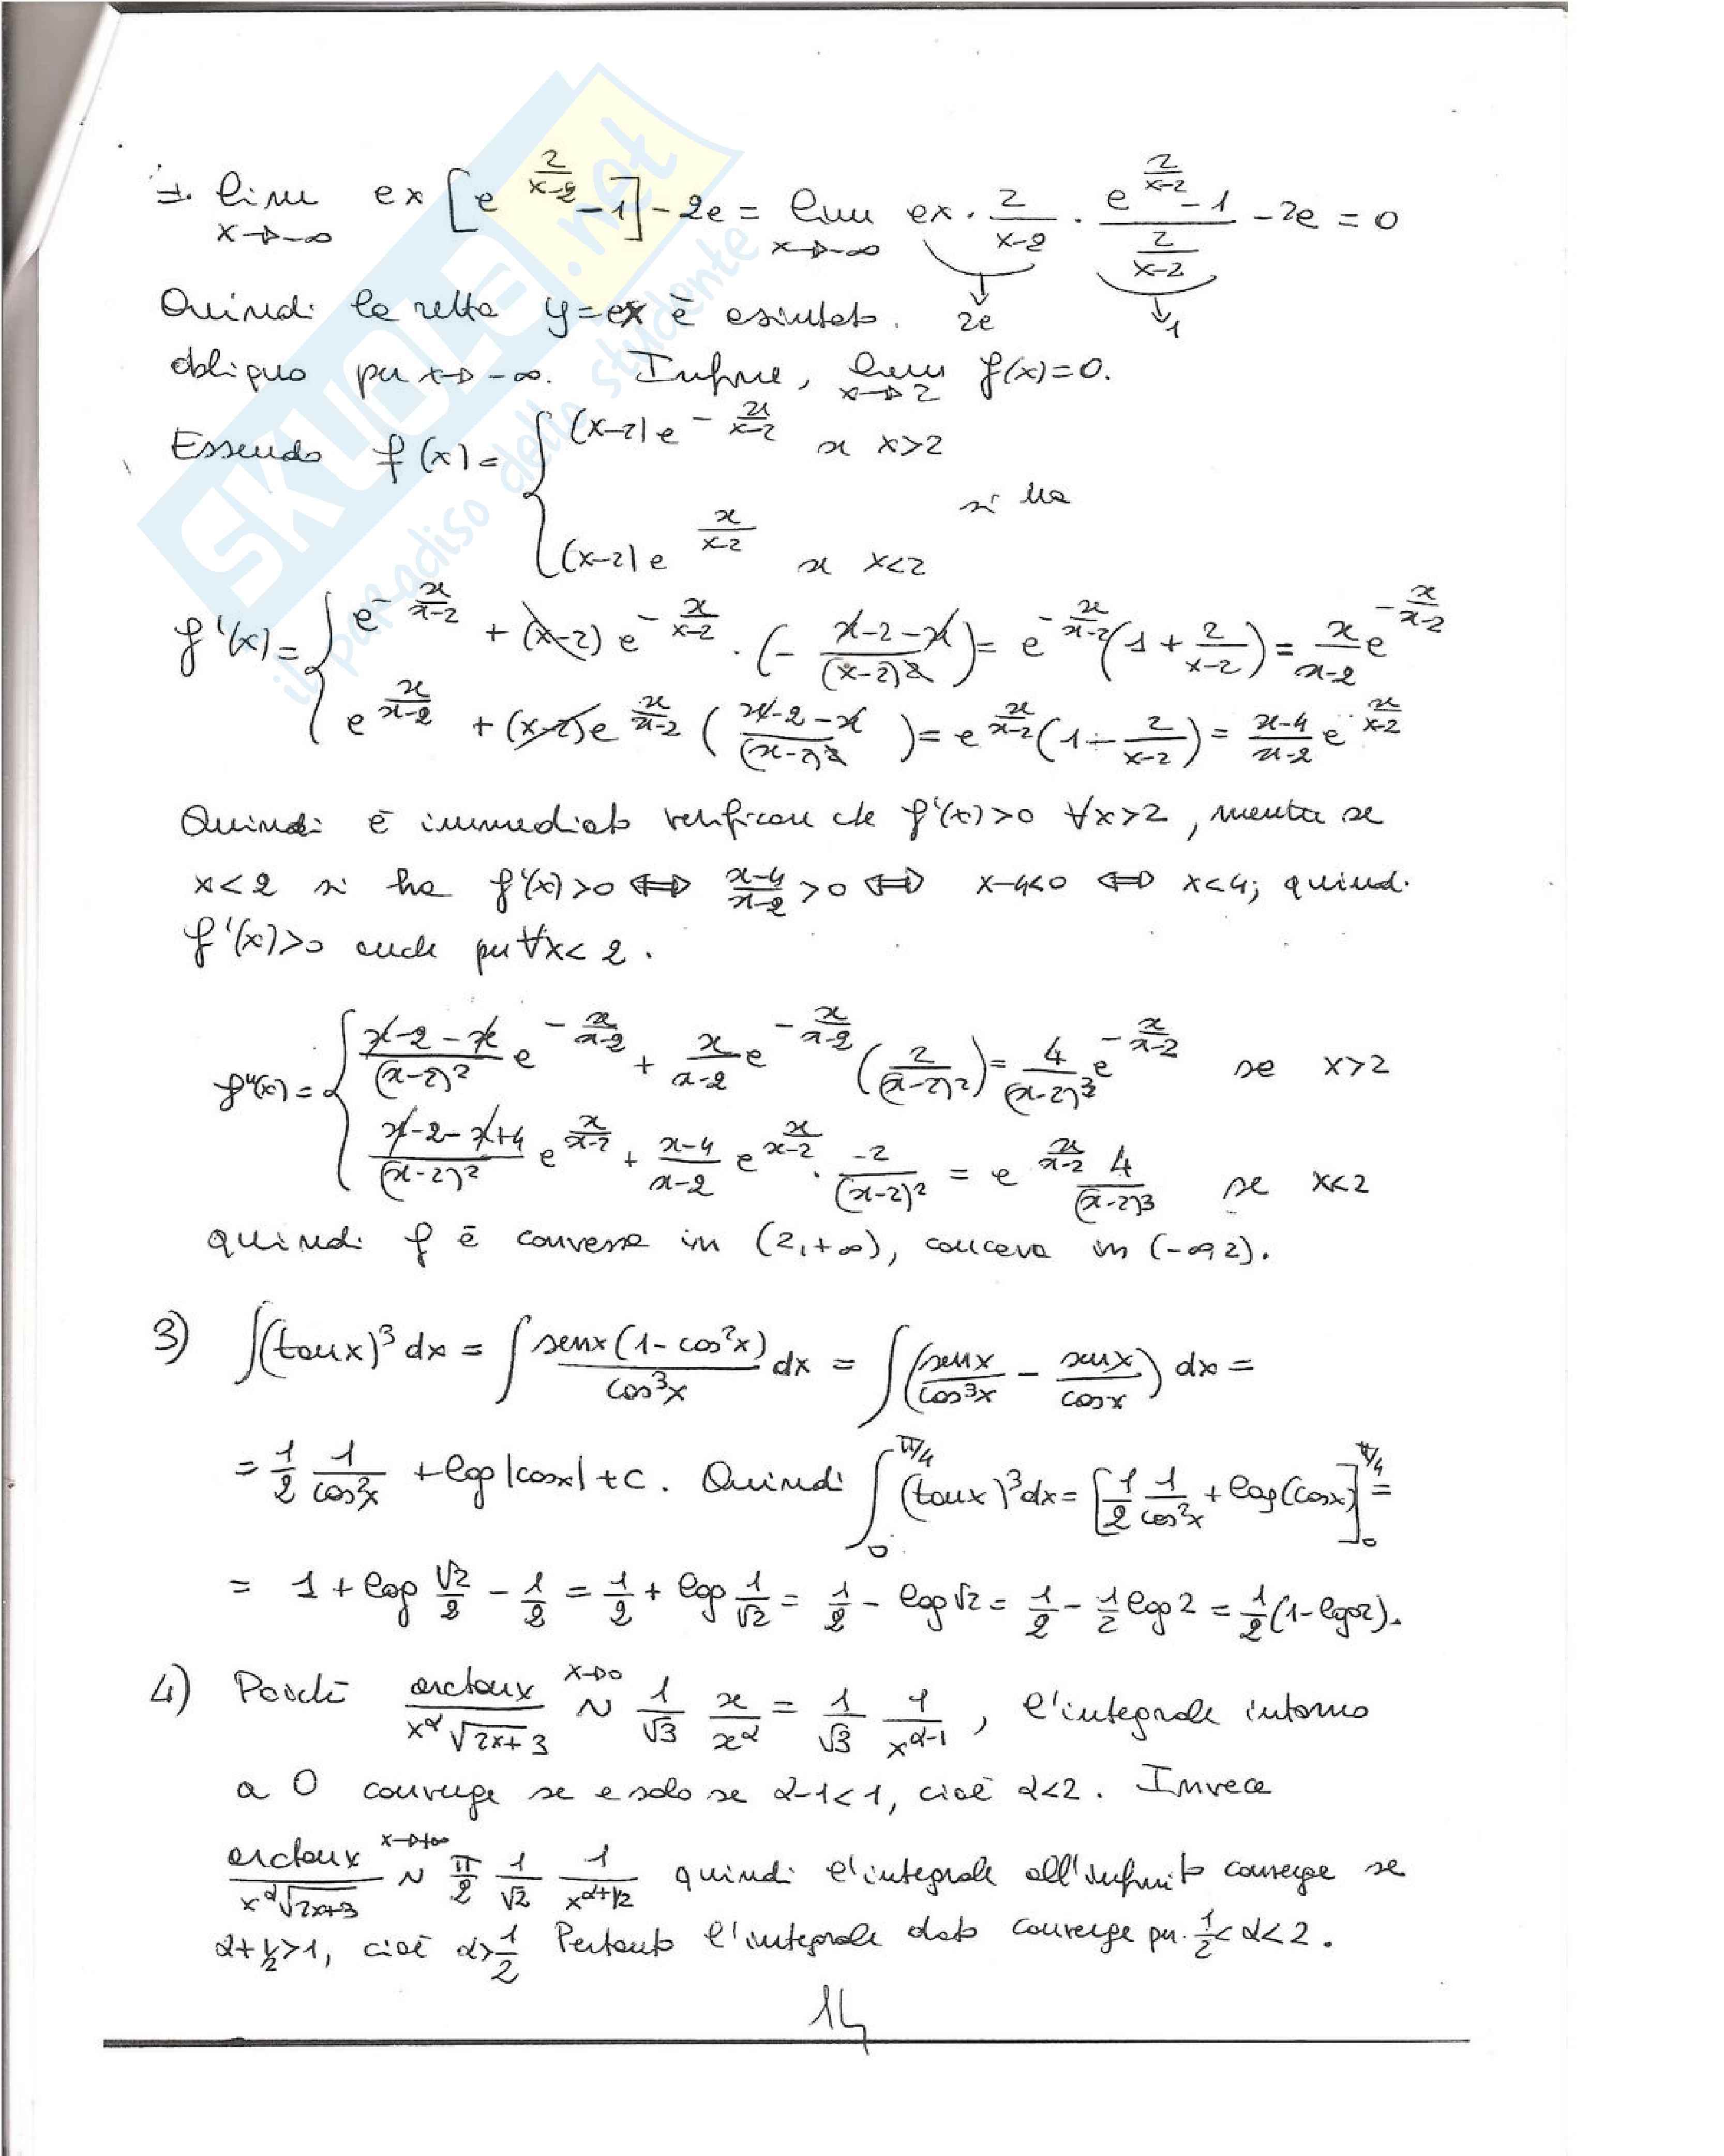 = lim x→-∞ ex [e^(2/(x-2)) - 1] - 2e = lim x→-∞ ex · 2/(x-2) · (e^(2/(x-2)) - 1)/(2/(x-2)) - 2e = 0
Quindi la retta y=ex è asintoto 2e 1
obliquo per x→-∞. Infine, lim x→2 f(x)=0.
Essendo f(x) = { (x-2) e^(-x/(x-2)) se x>2
si ha
(x-2) e^(x/(x-2)) se x<2
f'(x) = { e^(-x/(x-2)) + (x-2) e^(-x/(x-2)) · (- (x-2-x)/(x-2)²) = e^(-x/(x-2)) (1 + 2/(x-2)) = x/(x-2) e^(-x/(x-2))
e^(x/(x-2)) + (x-2) e^(x/(x-2)) ((x-2-x)/(x-2)²) = e^(x/(x-2)) (1 - 2/(x-2)) = (x-4)/(x-2) e^(x/(x-2))
Quindi è immediato verificare che f'(x)>0 ∀x>2, mentre se
x<2 si ha f'(x)>0 ⇔ (x-4)/(x-2) >0 ⇔ x-4<0 ⇔ x<4; quindi
f'(x)>0 anche per ∀x<2.
f''(x) = { (x-2-x)/(x-2)² e^(-x/(x-2)) + x/(x-2) e^(-x/(x-2)) (2/(x-2)²) = 4/(x-2)³ e^(-x/(x-2)) se x>2
(x-2-x+4)/(x-2)² e^(x/(x-2)) + (x-4)/(x-2) e^(x/(x-2)) · -2/(x-2)² = e^(x/(x-2)) 4/(x-2)³ se x<2
quindi f è convessa in (2,+∞), concava in (-∞,2).
3) ∫(tanx)³ dx = ∫ senx(1-cos²x)/cos³x dx = ∫ (senx/cos³x - senx/cosx) dx =
= 1/2 1/cos²x + log|cosx| + c. Quindi ∫₀^(π/4) (tanx)³ dx = [1/2 1/cos²x + log(cosx)]₀^(π/4) =
= 1 + log √2/2 - 1/2 = 1/2 + log 1/√2 = 1/2 - log√2 = 1/2 - 1/2 log2 = 1/2 (1-log2).
4) Poiché arctanx/(x^α √(2x+3)) ~ x→0 1/√3 x/x^α = 1/√3 1/x^(α-1), l'integrale intorno
a 0 converge se e solo se α-1<1, cioè α<2. Invece
arctanx/(x^α √(2x+3)) ~ x→+∞ π/2 1/√2 1/x^(α+1/2) quindi l'integrale all'infinito converge se
α+1/2>1, cioè α>1/2 Pertanto l'integrale dato converge per 1/2<α<2.
14
SKUOLA.net
il paradiso dello studente